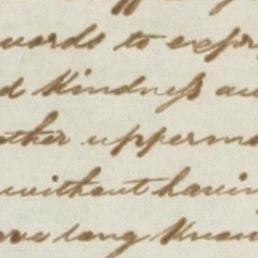 words to expr
d Kindness au
ather upperm
without havin
ave long Know